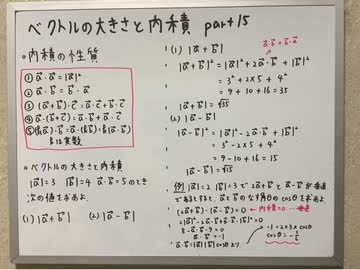 ベクトルの大きさと内積 part15
○内積の性質
① a⃗・a⃗=|a⃗|²
② a⃗・b⃗=b⃗・a⃗
③ (a⃗+b⃗)・c⃗=a⃗・c⃗+b⃗・c⃗
④ a⃗・(b⃗+c⃗)=a⃗・b⃗+a⃗・c⃗
⑤ (ka⃗)・b⃗=a⃗・(kb⃗)=k(a⃗・b⃗)
kは実数
○ベクトルの大きさと内積
|a⃗|=3 |b⃗|=4 a⃗・b⃗=5のとき
次の値を求めよ
(1) |a⃗+b⃗| (2) |a⃗-b⃗|
(1) |a⃗+b⃗|
a⃗・b⃗+b⃗・a⃗
|a⃗+b⃗|²=|a⃗|²+2a⃗・b⃗+|b⃗|²
=3²+2×5+4²
=9+10+16=35
|a⃗+b⃗|=√35
(2) |a⃗-b⃗|
|a⃗-b⃗|²=|a⃗|²-2a⃗・b⃗+|b⃗|²
=3²-2×5+4²
=9-10+16=15
|a⃗-b⃗|=√15
例 |a⃗|=2 |b⃗|=3で2a⃗+b⃗とa⃗-b⃗が垂直
であるとするとa⃗とb⃗のなす角θのcosθを求めよ
(2a⃗+b⃗)・(a⃗-b⃗)=0 ← 内積=0→垂直
2|a⃗|²-2a⃗・b⃗+a⃗・b⃗-|b⃗|²=0
8-a⃗・b⃗-9=0
a⃗・b⃗=-1
a⃗・b⃗=|a⃗||b⃗|cosθより
-1=2×3×cosθ
cosθ=-1/6